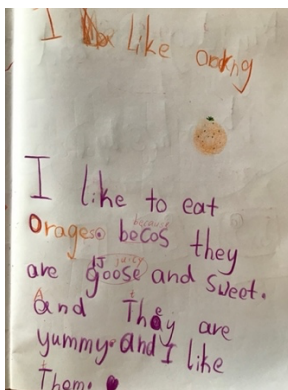 I like
I like to eat
Orages. becos they
are goose and sweet.
and They are
yummy and I like
Them.